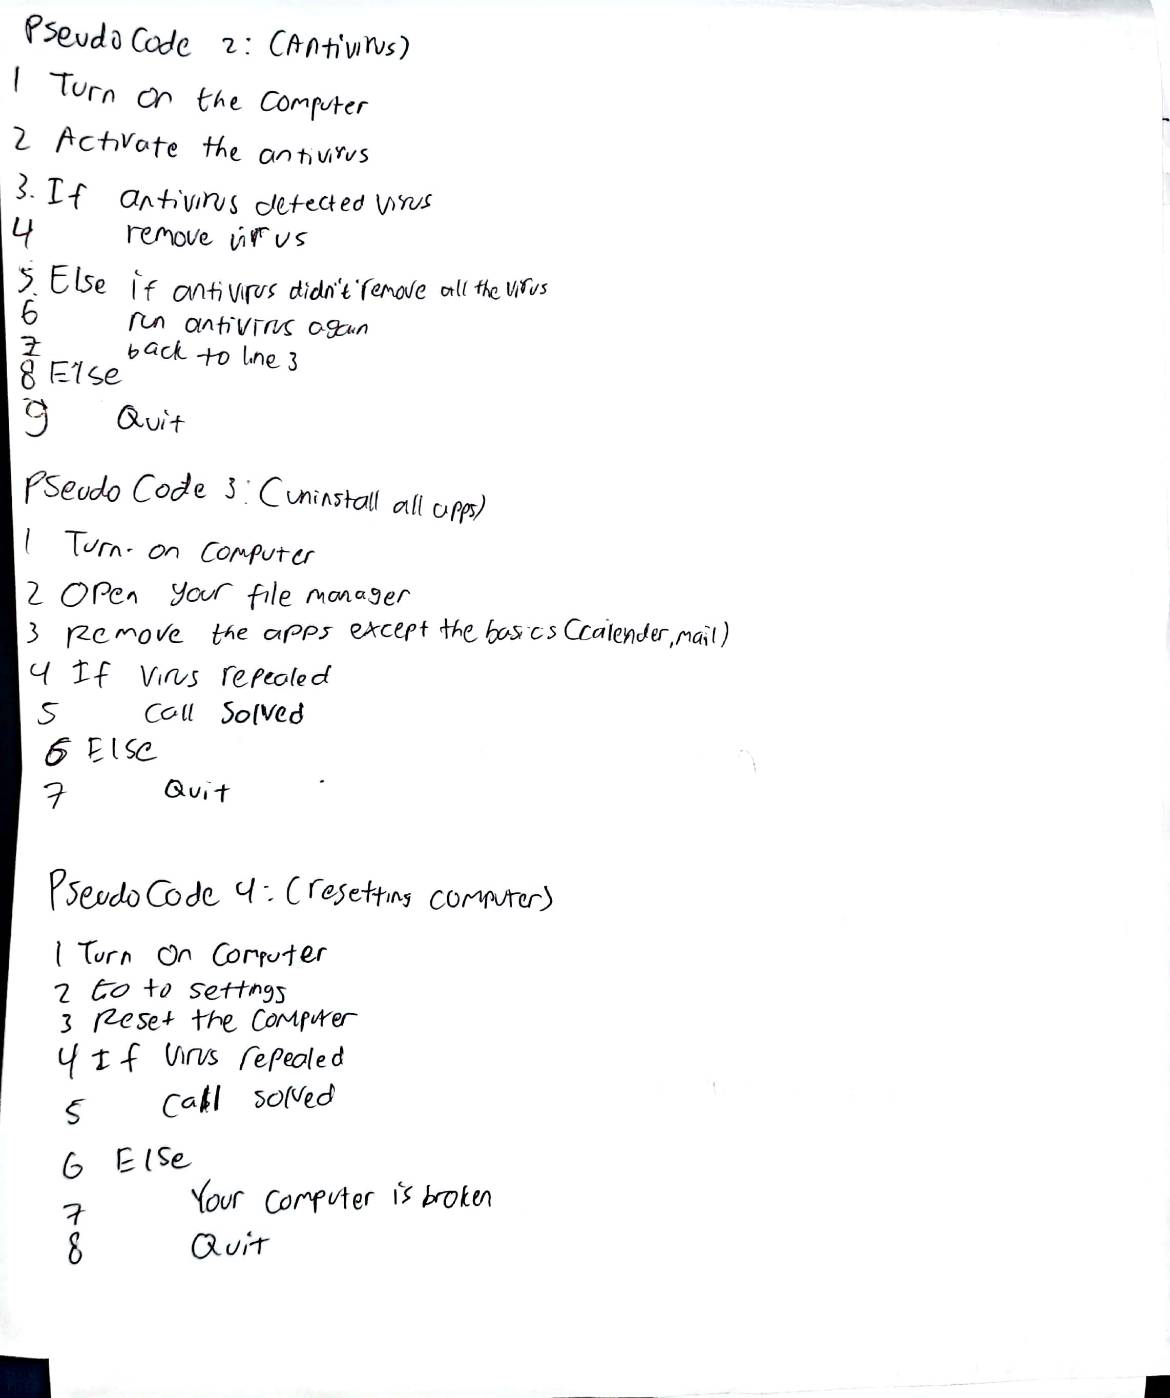 Pseudo Code 2: (Antivirus)
1 Turn on the computer
2 Activate the antivirus
3. If antivirus detected virus
4 remove virus
5. Else if antivirus didn't remove all the virus
6 run antivirus again
7 back to line 3
8 Else
9 Quit
Pseudo Code 3: (uninstall all apps)
1 Turn on computer
2 Open your file manager
3 Remove the apps except the basics (calender, mail)
4 If virus repealed
5 call solved
6 Else
7 Quit
Pseudo Code 4: (resetting computer)
1 Turn on computer
2 Go to settings
3 Reset the computer
4 If virus repealed
5 call solved
6 Else
7 Your computer is broken
8 Quit